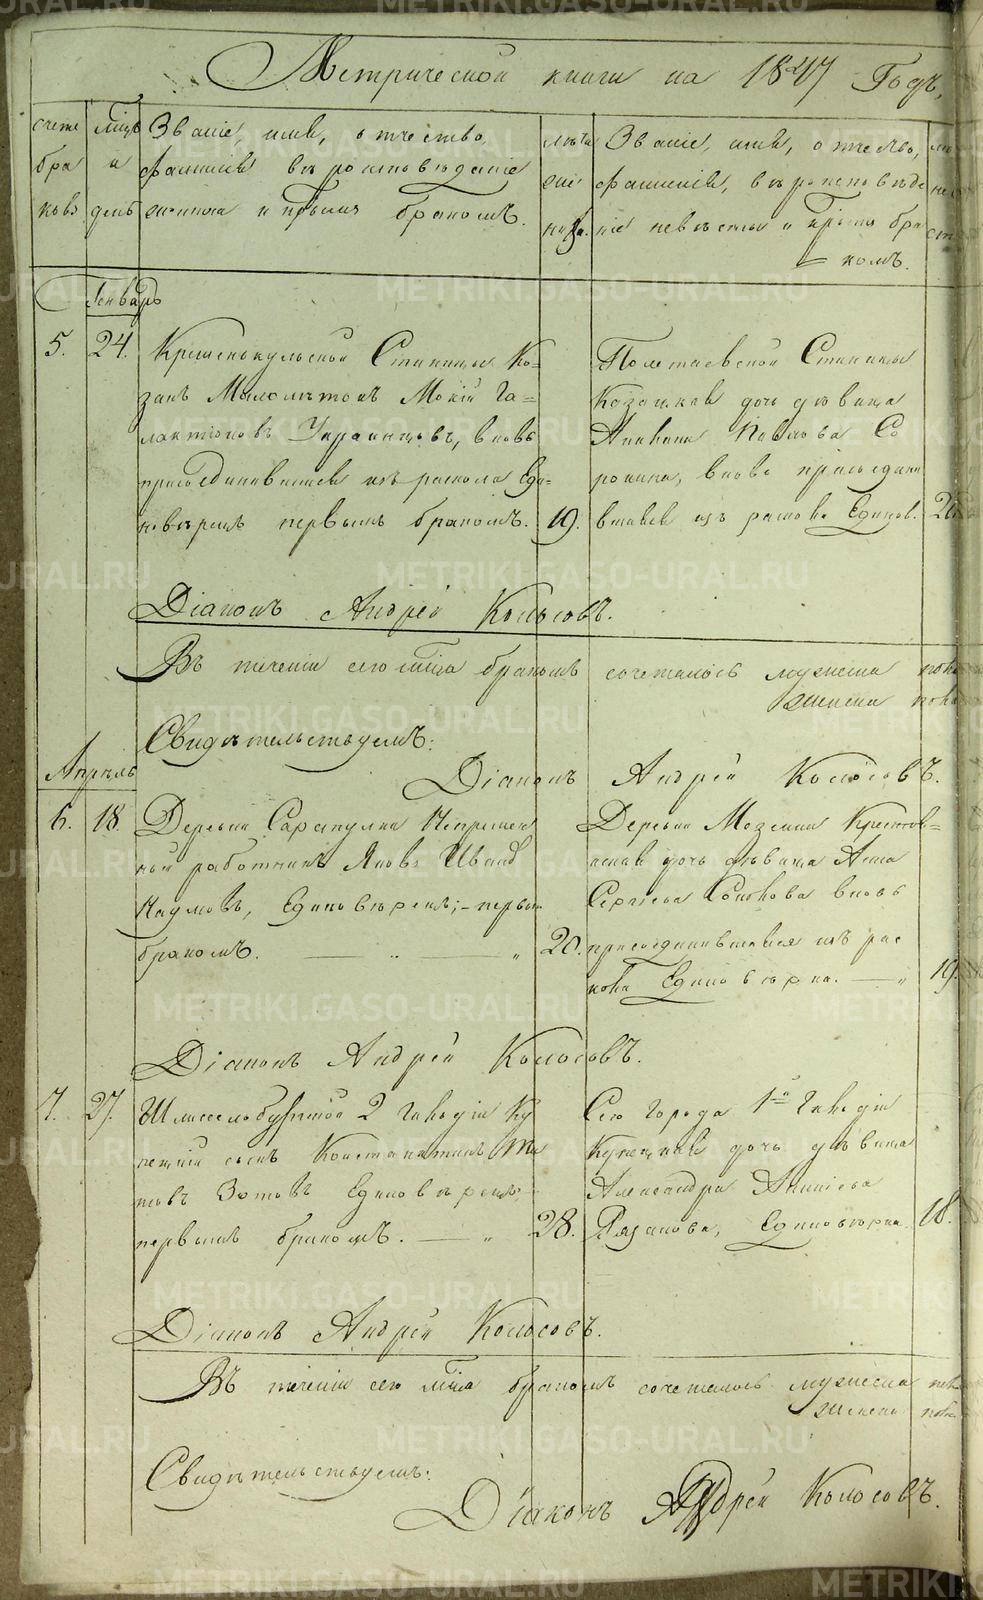 Метрической книги на 1847 Годъ,
счетъ
бра
ковъ
мцъ
и
день
Званіе, имя, отчество,
фамилія, вѣроисповѣданіе
жениха и коимъ бракомъ.
лѣта
же
ниха.
Званіе, имя, отчество,
фамилія, вѣроисповѣда
ніе невѣсты и коимъ бра
комъ.
Генварь
5. 24.
Станицы Ко=
закъ Мокій Га=
лактіоновъ Украинцовъ, вновь
присоединившійся изъ раскола Еди=
новѣрецъ первымъ бракомъ. 19.
Полтаевской Станицы
Козачья дочь дѣвица
Павлова Со
рокина, вновь присоедини
вшаяся изъ раскола Единов.
Діаконъ Андрей Колосовъ.
Въ теченіи сего мца бракомъ сочеталось мужеска
женска
Свидѣтельствуемъ:
Діаконъ Андрей Колосовъ.
Апрѣль
6. 18.
Деревни Сарапулки Непремен
ный работникъ Яковъ Иванов
Наумовъ, Единовѣрецъ; первым
бракомъ. 20.
Деревни Мезенки Крестья=
нская дочь дѣвица Анна
Сергіева вновь
присоединившаяся изъ рас
кола Единовѣрка. 19.
Діаконъ Андрей Колосовъ.
7. 27.
Шлиссельбургской 2 Гильдіи Ку
пецкій сынъ Константинъ Ти
товъ Зотовъ Единовѣрецъ
первымъ бракомъ. 28.
Сего города 1й Гильдіи
Купецкая дочь дѣвица
Александра Аникіева
Рязанова, Единовѣрка. 18.
Діаконъ Андрей Колосовъ.
Въ теченіи сего мца бракомъ сочеталось мужеска
женска
Свидѣтельствуемъ:
Діаконъ Андрей Колосовъ.
METRIKI.GASO-URAL.RU